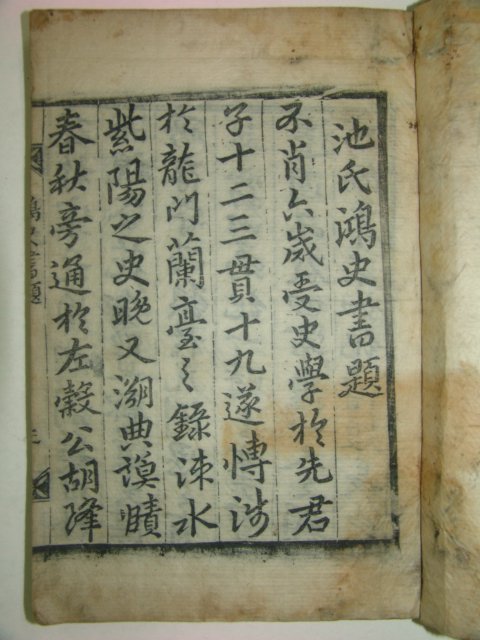 池氏鴻史書題
不肖六歲受史學於先君
子十二三貫十九遂博涉
於龍門蘭臺之錄涑水
紫陽之史晩又溯典謨賾
春秋旁通於左穀公胡降
鴻史書題